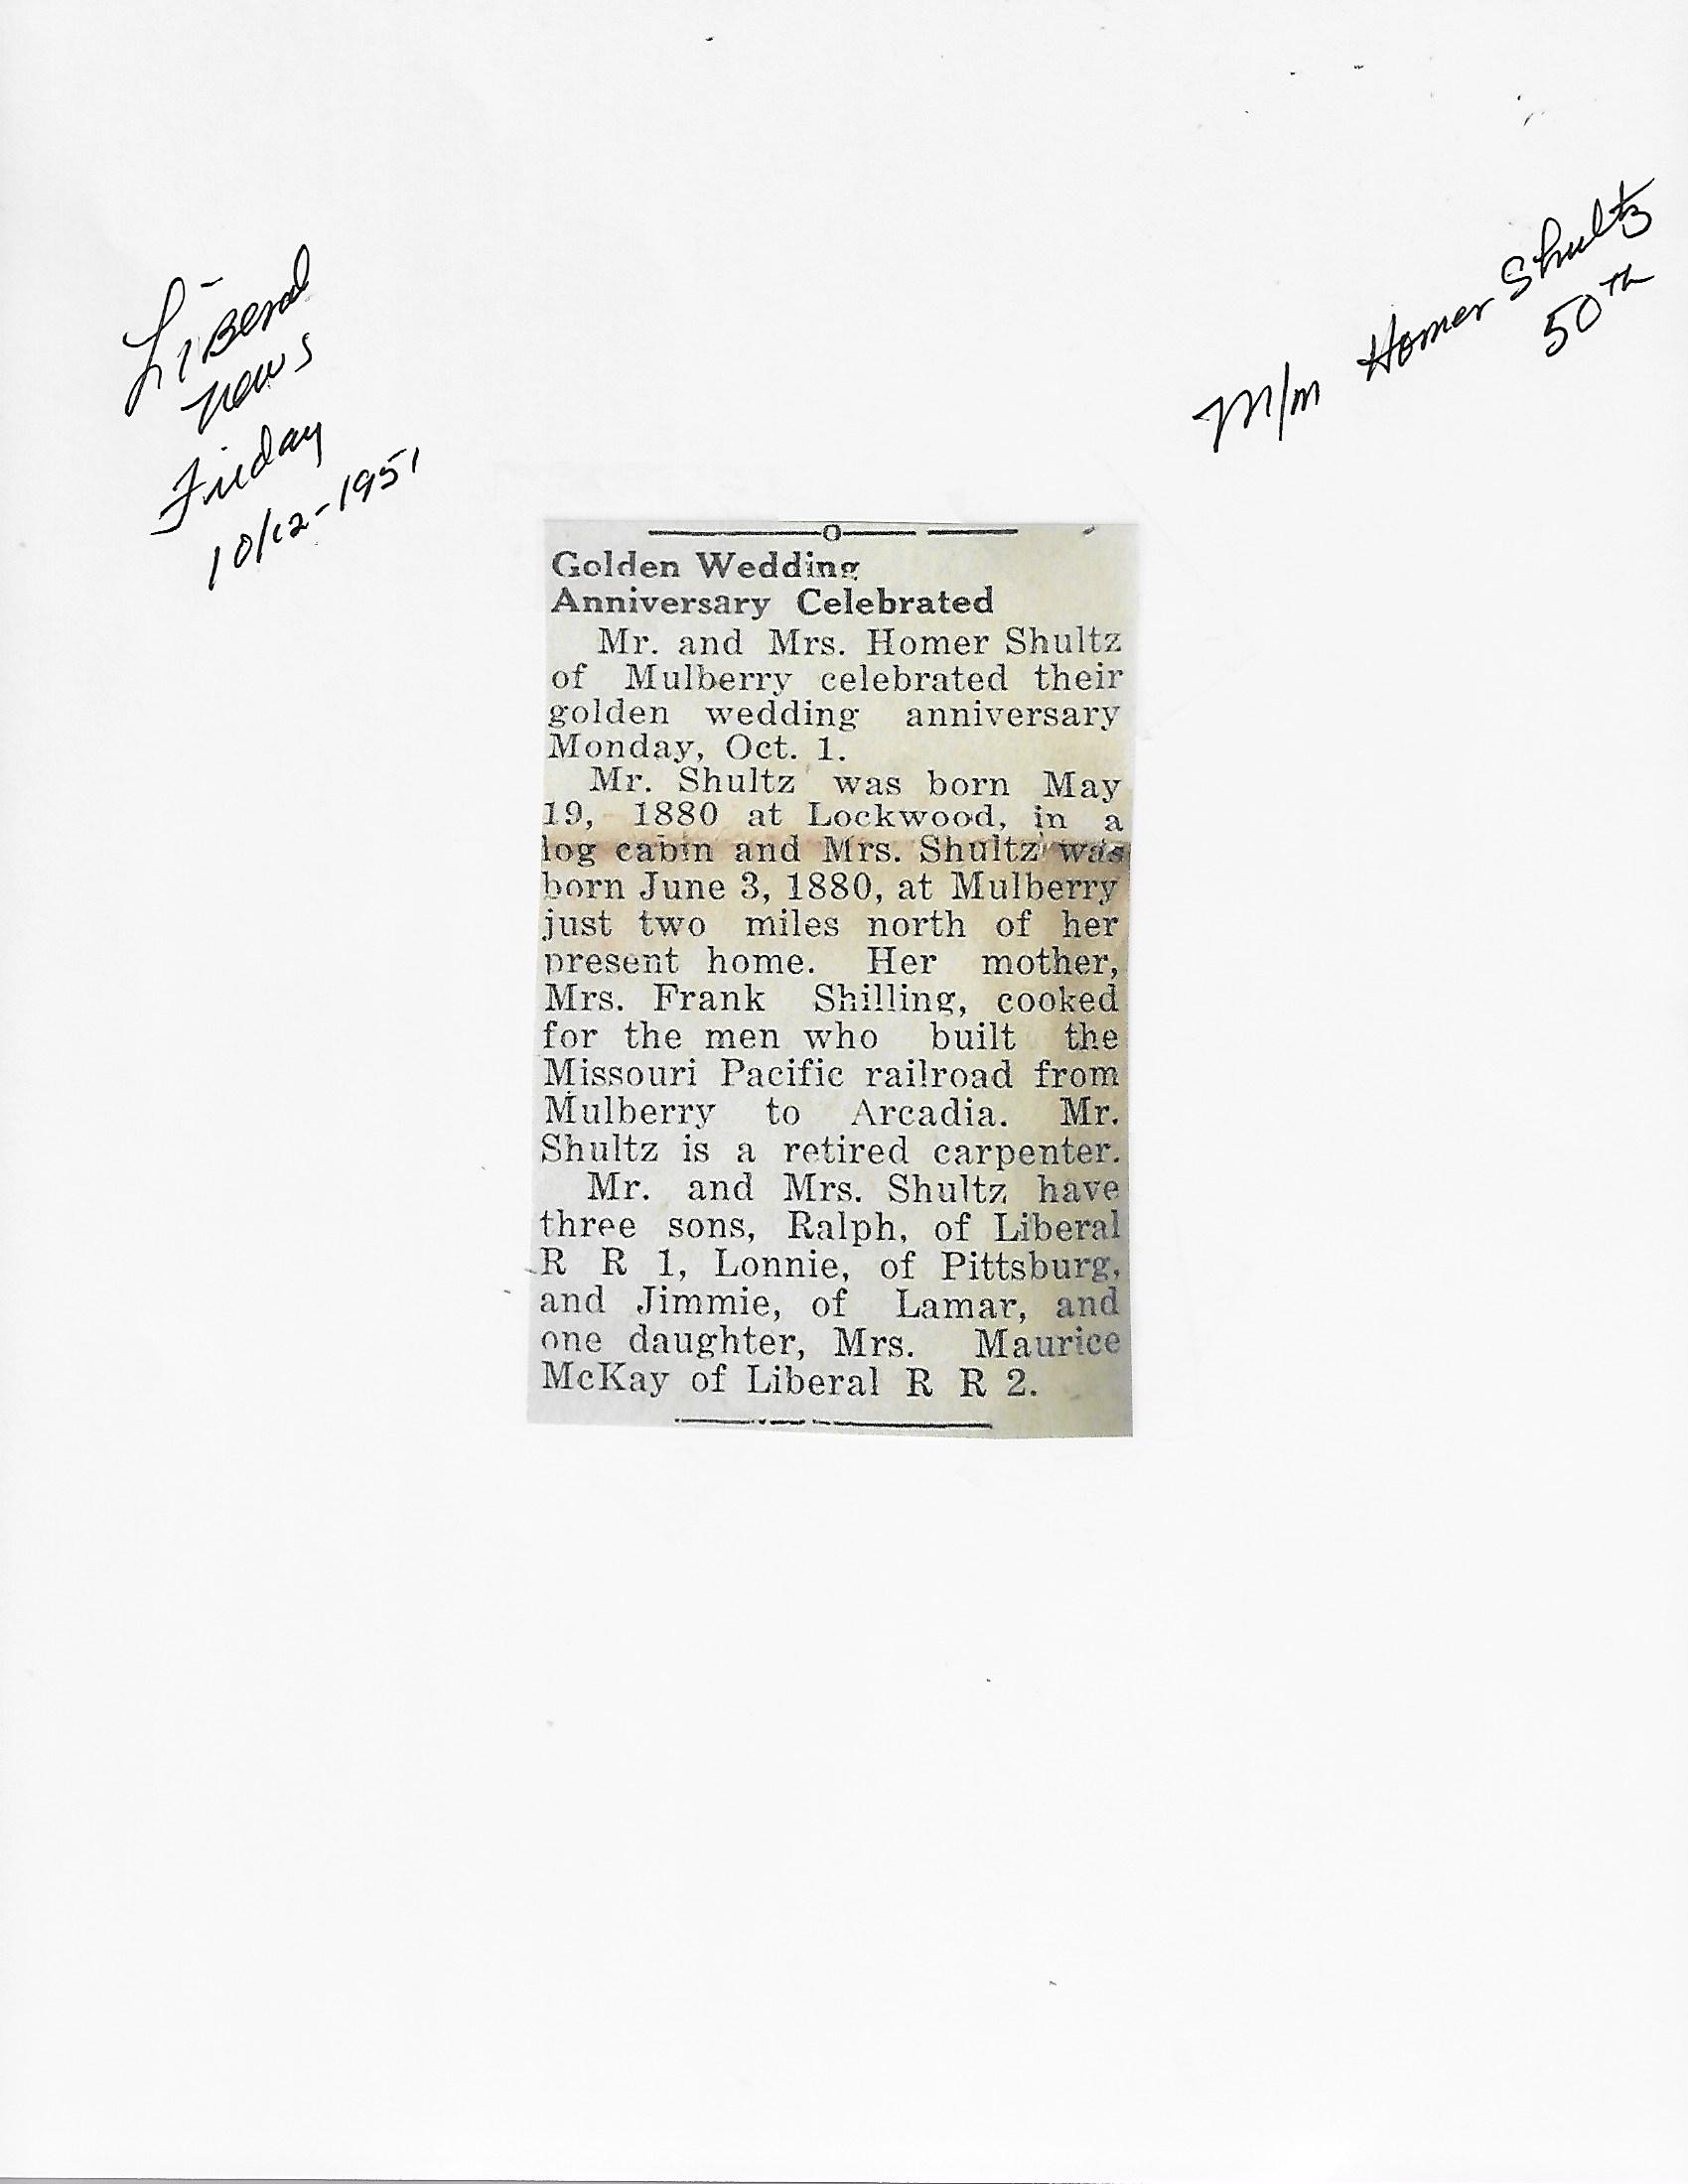 Liberal
News
Friday
10/12-1951
M/m Homer Shultz
50th
Golden Wedding
Anniversary Celebrated
Mr. and Mrs. Homer Shultz
of Mulberry celebrated their
golden wedding anniversary
Monday, Oct. 1.
Mr. Shultz was born May
19, 1880 at Lockwood, in a
log cabin and Mrs. Shultz was
born June 3, 1880, at Mulberry
just two miles north of her
present home. Her mother,
Mrs. Frank Shilling, cooked
for the men who built the
Missouri Pacific railroad from
Mulberry to Arcadia. Mr.
Shultz is a retired carpenter.
Mr. and Mrs. Shultz have
three sons, Ralph, of Liberal
R R 1, Lonnie, of Pittsburg,
and Jimmie, of Lamar, and
one daughter, Mrs. Maurice
McKay of Liberal R R 2.